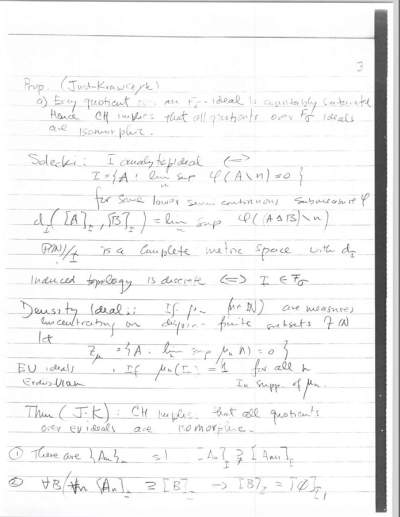 3
Prop. (Just-Krawczyk)
a) Every quotient over an Fσ-ideal is countably saturated
Hence CH implies that all quotients over Fσ ideals
are isomorphic.
Solecki: I analytic p ideal ⟺
I = {A : lim sup φ(A\n) = 0}
for some lower semi continuous submeasure φ
d_I([A]_I, [B]_I) = lim sup φ((AΔB)\n)
P(N)/I is a complete metric space with d_I
Induced topology is discrete ⟺ I ∈ Fσ
Density Ideals: If μ_n (n∈N) are measures
concentrating on disjoint finite subsets of N
let
Z_μ = {A : lim sup μ_n(A) = 0}
EU ideals : If μ_n(I_n) = 1 for all n
Erdos-Ulam I_n supp. of μ_n.
Thm (J-K): CH implies that all quotients
over EU ideals are isomorphic.
① There are {A_n}_n st [A_n]_I ≥ [A_{n+1}]_I
② ∀B (∀n [A_n] ≥ [B] → [B]_I = [∅]_I)